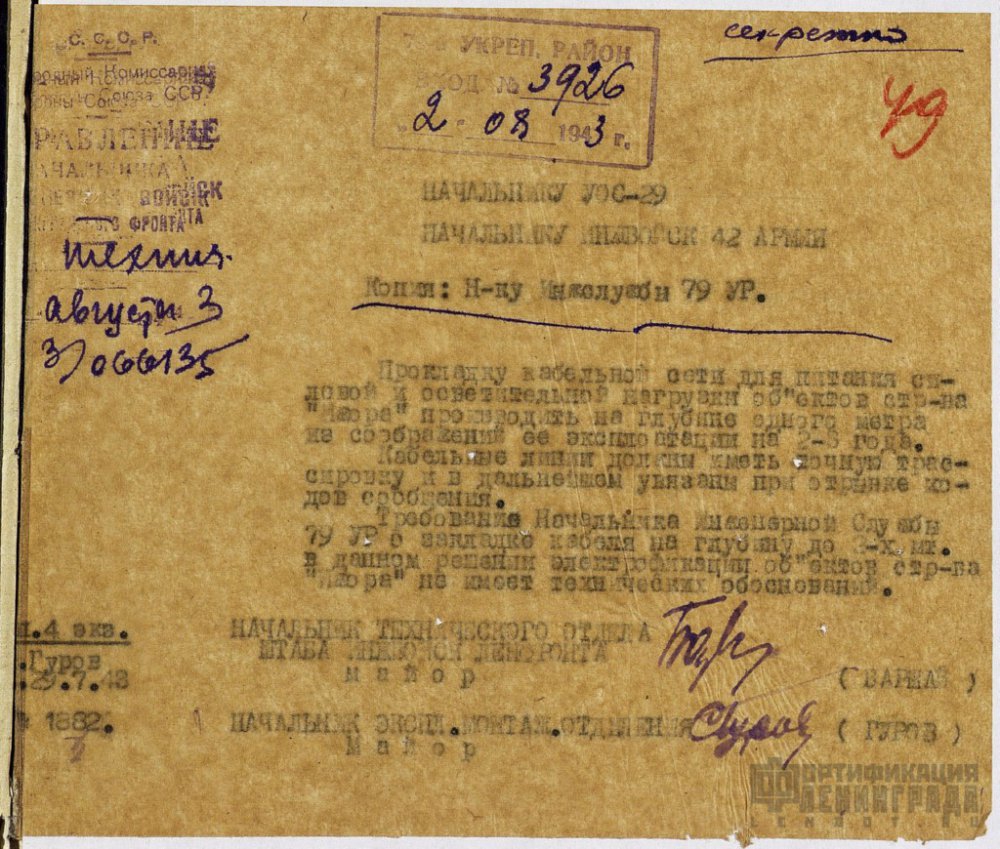 С. С. С. Р.
Народный Комиссариат
Союза ССР.
УПРАВЛЕНИЕ
НАЧАЛЬНИКА
ВОЙСК
ФРОНТА
августа 3
066135
УКРЕП. РАЙОН
ВХОД № 3926
2 - 08 1943 г.
секретно
49
НАЧАЛЬНИКУ УОС-29
НАЧАЛЬНИКУ ИНЖВОЙСК 42 АРМИИ
Копия: Н-ку Инжслужбы 79 УР.
Прокладку кабельной сети для питания си-
ловой и осветительной нагрузки об"ектов стр-ва
"Ижора" производить на глубине одного метра
из соображений ее эксплоатации на 2-3 года.
Кабельные линии должны иметь точную трас-
сировку и в дальнейшем увязаны при отрывке хо-
дов сообщения.
Требование Начальника Инженерной Службы
79 УР о закладке кабеля на глубину до 3-х мт.
в данном решении электрофикации об"ектов стр-ва
"Ижора" не имеет технических обоснований.
4 экз.
Гуров
29.7.43
1882.
НАЧАЛЬНИК ТЕХНИЧЕСКОГО ОТДЕЛА
ШТАБА ИНЖВОЙСК ЛЕНФРОНТА
майор
( ВАРНАЙ )
НАЧАЛЬНИК ЭКСПЛ.МОНТАЖ.ОТДЕЛЕНИЯ
Майор
( ГУРОВ )
ФОРТИФИКАЦИЯ
ЛЕНИНГРАДА